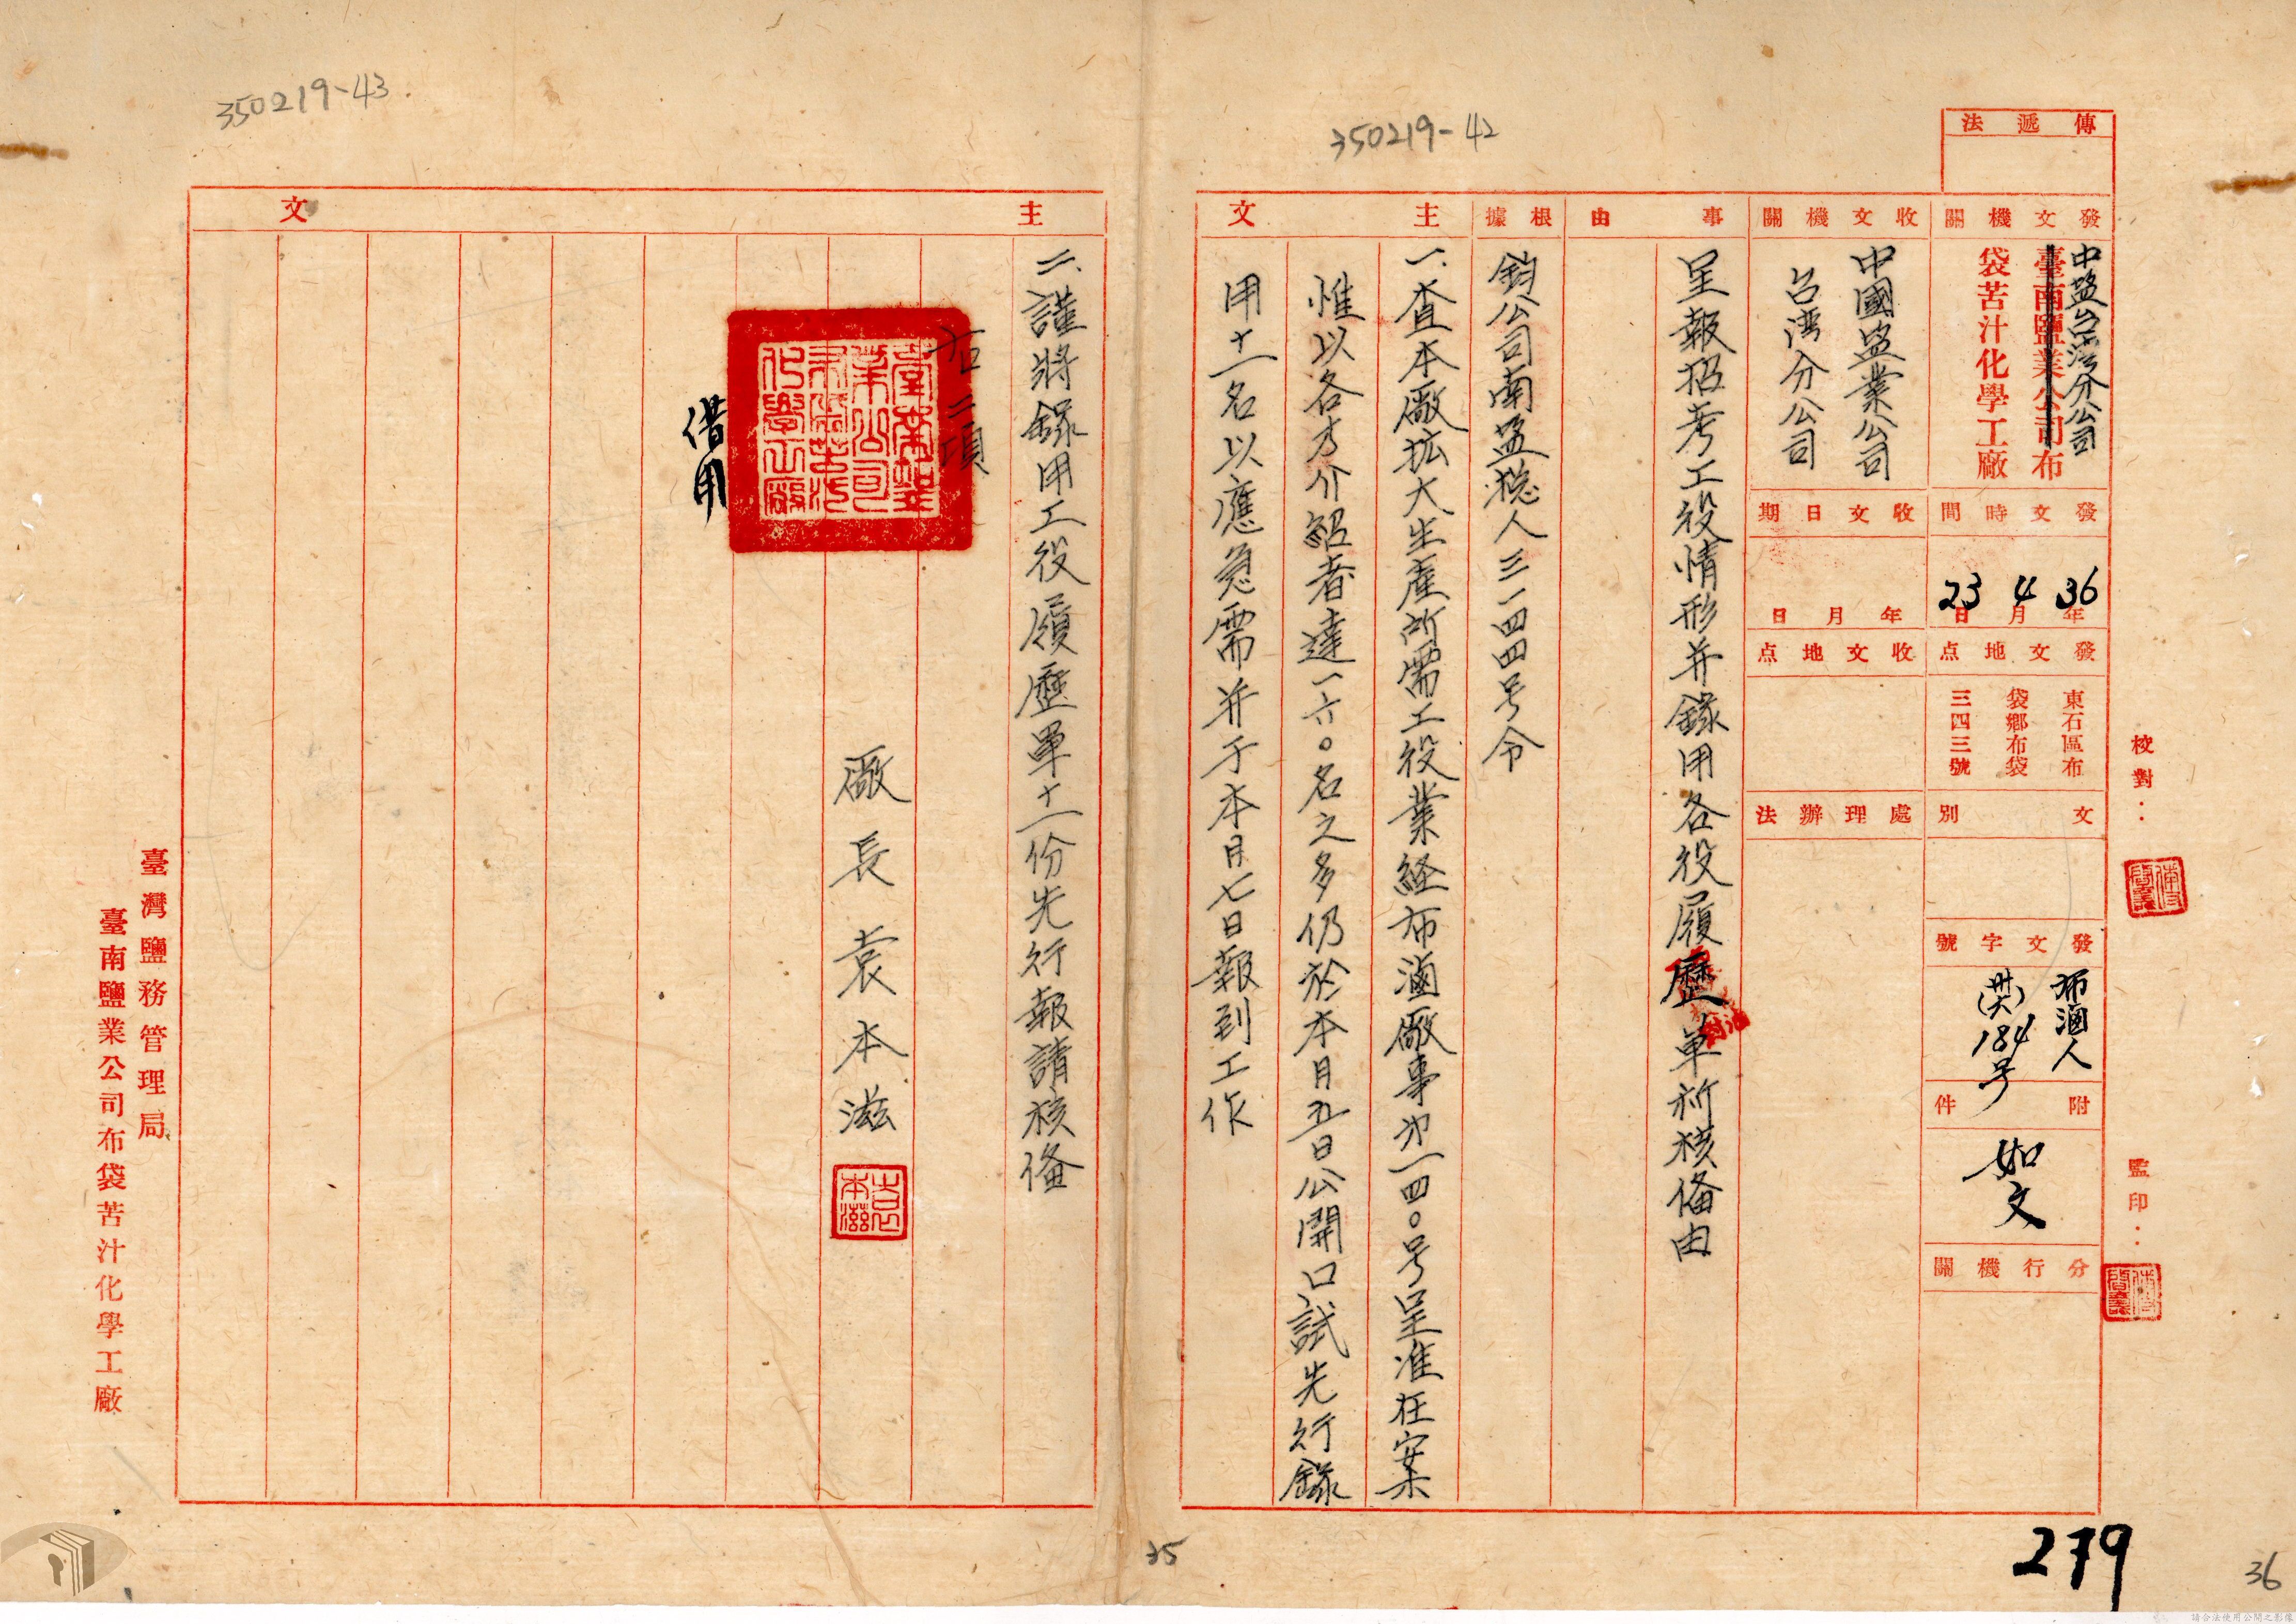 350219-42
傳遞法
發文機關
中盐台湾分公司
臺南鹽業公司布
袋苦汁化學工廠
收文機關
中國盐業公司
台湾分公司
發文時間
36年4月23日
收文日期
年月日
發文地点
東石區布
袋鄉布袋
三四三號
收文地点
文別
處理辦法
發文字號
布滷人
(卅六)184号
附件
如文
分行機關
校對：
監印：
事由
呈報招考工役情形并錄用各役履歷單祈核俻由
根據
鈞公司南盐総人三一四四号令
主文
一、查本廠拡大生産所需工役業経布滷廠事字一四〇号呈准在案
惟以各方介紹者達一六〇名之多仍於本月五日公開口試先行錄
用十一名以應急需并于本月七日報到工作
279
36
35
350219-43
主文
二、謹將錄用工役履歷單十一份先行報請核俻
右二項
臺南鹽
業公司
布袋苦汁
化學工廠
借用
廠長袁本滋
袁本滋
臺灣鹽務管理局
臺南鹽業公司布袋苦汁化學工廠
請合法使用公開之影像